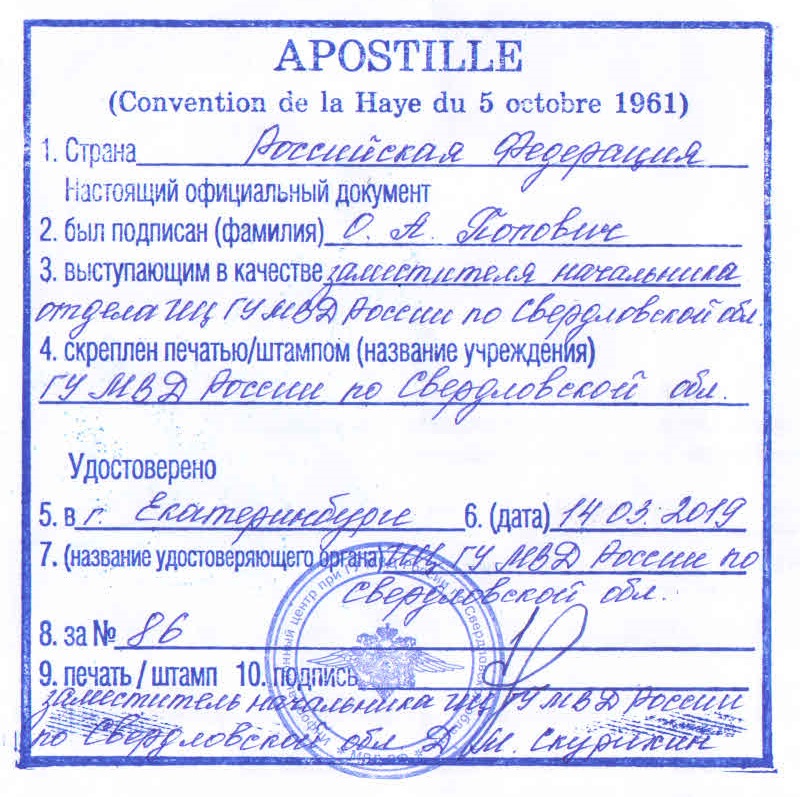 APOSTILLE
(Convention de la Haye du 5 octobre 1961)
1. Страна Российская Федерация
Настоящий официальный документ
2. был подписан (фамилия) О. А. Попович
3. выступающим в качестве заместителя начальника
отдела ИЦ ГУ МВД России по Свердловской обл.
4. скреплен печатью/штампом (название учреждения)
ГУ МВД России по Свердловской обл.
Удостоверено
5. в г. Екатеринбурге 6. (дата) 14 03. 2019
7. (название удостоверяющего органа) ИЦ ГУ МВД России по
Свердловской обл.
8. за № 86
9. печать / штамп 10. подпись
заместитель начальника ИЦ ГУ МВД России
по Свердловской обл. Д. М. Скурихин